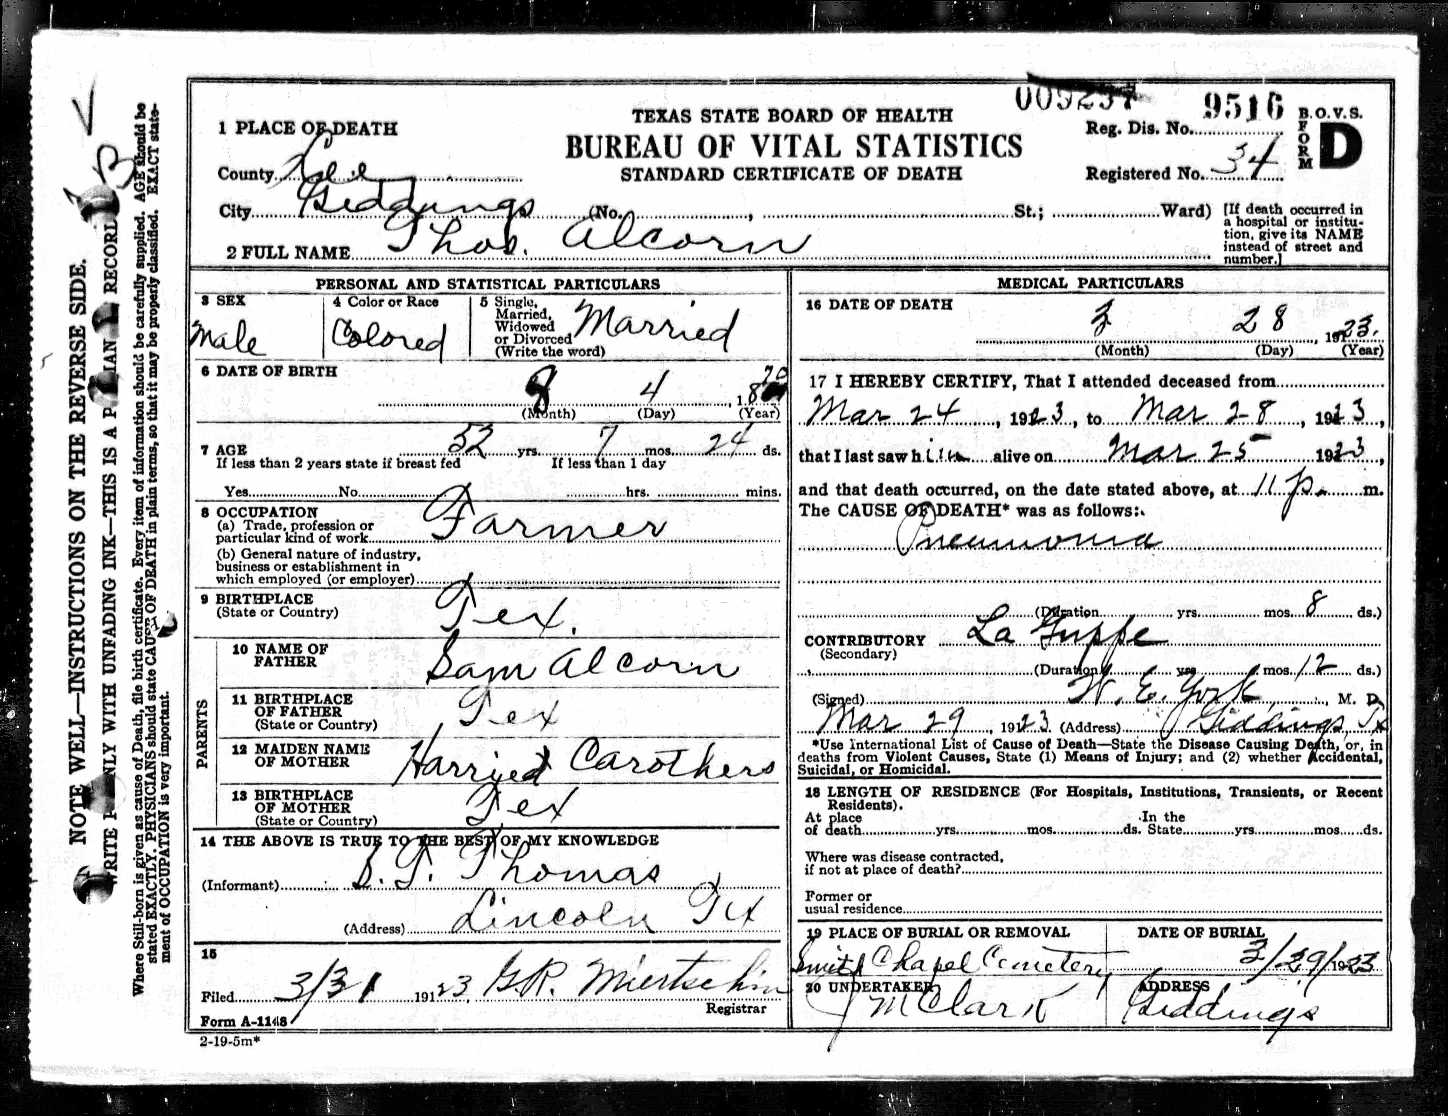 009257 9516
TEXAS STATE BOARD OF HEALTH
BUREAU OF VITAL STATISTICS
STANDARD CERTIFICATE OF DEATH
B.O.V.S.
FORM D
Reg. Dis. No.
Registered No. 34
1 PLACE OF DEATH
County Lee
City Giddings (No. , St.; Ward)
[If death occurred in
a hospital or institu-
tion, give its NAME
instead of street and
number.]
2 FULL NAME Thos. Alcorn
PERSONAL AND STATISTICAL PARTICULARS
3 SEX
Male
4 Color or Race
Colored
5 Single,
Married,
Widowed
or Divorced
(Write the word)
Married
6 DATE OF BIRTH
8 4 , 18
(Month) (Day) (Year)
7 AGE 52 yrs. 7 mos. 24 ds.
If less than 2 years state if breast fed If less than 1 day
Yes No hrs. mins.
8 OCCUPATION
(a) Trade, profession or
particular kind of work Farmer
(b) General nature of industry,
business or establishment in
which employed (or employer)
9 BIRTHPLACE
(State or Country) Tex.
PARENTS
10 NAME OF
FATHER Sam Alcorn
11 BIRTHPLACE
OF FATHER
(State or Country) Tex
12 MAIDEN NAME
OF MOTHER Harriet Carothers
13 BIRTHPLACE
OF MOTHER
(State or Country) Tex
14 THE ABOVE IS TRUE TO THE BEST OF MY KNOWLEDGE
(Informant) S. T. Thomas
(Address) Lincoln Tex
15
Filed 3/31 1923 G.R. Miertschin
Registrar
Form A-1148
2-19-5m*
MEDICAL PARTICULARS
16 DATE OF DEATH
3 28 , 1923.
(Month) (Day) (Year)
17 I HEREBY CERTIFY, That I attended deceased from
Mar 24 , 1923, to Mar 28 , 1923,
that I last saw him alive on Mar 25 1923,
and that death occurred, on the date stated above, at 11 p. m.
The CAUSE OF DEATH* was as follows:
Pneumonia
(Duration yrs. mos. 8 ds.)
CONTRIBUTORY La Grippe
(Secondary)
(Duration yrs mos. 12 ds.)
(Signed) W. E. York , M. D.
Mar 29 , 1923 (Address) Giddings, Tx
*Use International List of Cause of Death—State the Disease Causing Death, or, in
deaths from Violent Causes, State (1) Means of Injury; and (2) whether Accidental,
Suicidal, or Homicidal.
18 LENGTH OF RESIDENCE (For Hospitals, Institutions, Transients, or Recent
Residents).
At place In the
of death yrs. mos. ds. State yrs. mos. ds.
Where was disease contracted,
if not at place of death?
Former or
usual residence
19 PLACE OF BURIAL OR REMOVAL
Smith Chapel Cemetery
DATE OF BURIAL
3/29/1923
20 UNDERTAKER
J M Clark
ADDRESS
Giddings
NOTE WELL—INSTRUCTIONS ON THE REVERSE SIDE.
WRITE PLAINLY WITH UNFADING INK—THIS IS A RECORD
Where Still-born is given as cause of Death, file birth certificate. Every item of information should be carefully supplied. AGE should be
stated EXACTLY. PHYSICIANS should state CAUSE OF DEATH in plain terms, so that it may be properly classified. EXACT state-
ment of OCCUPATION is very important.